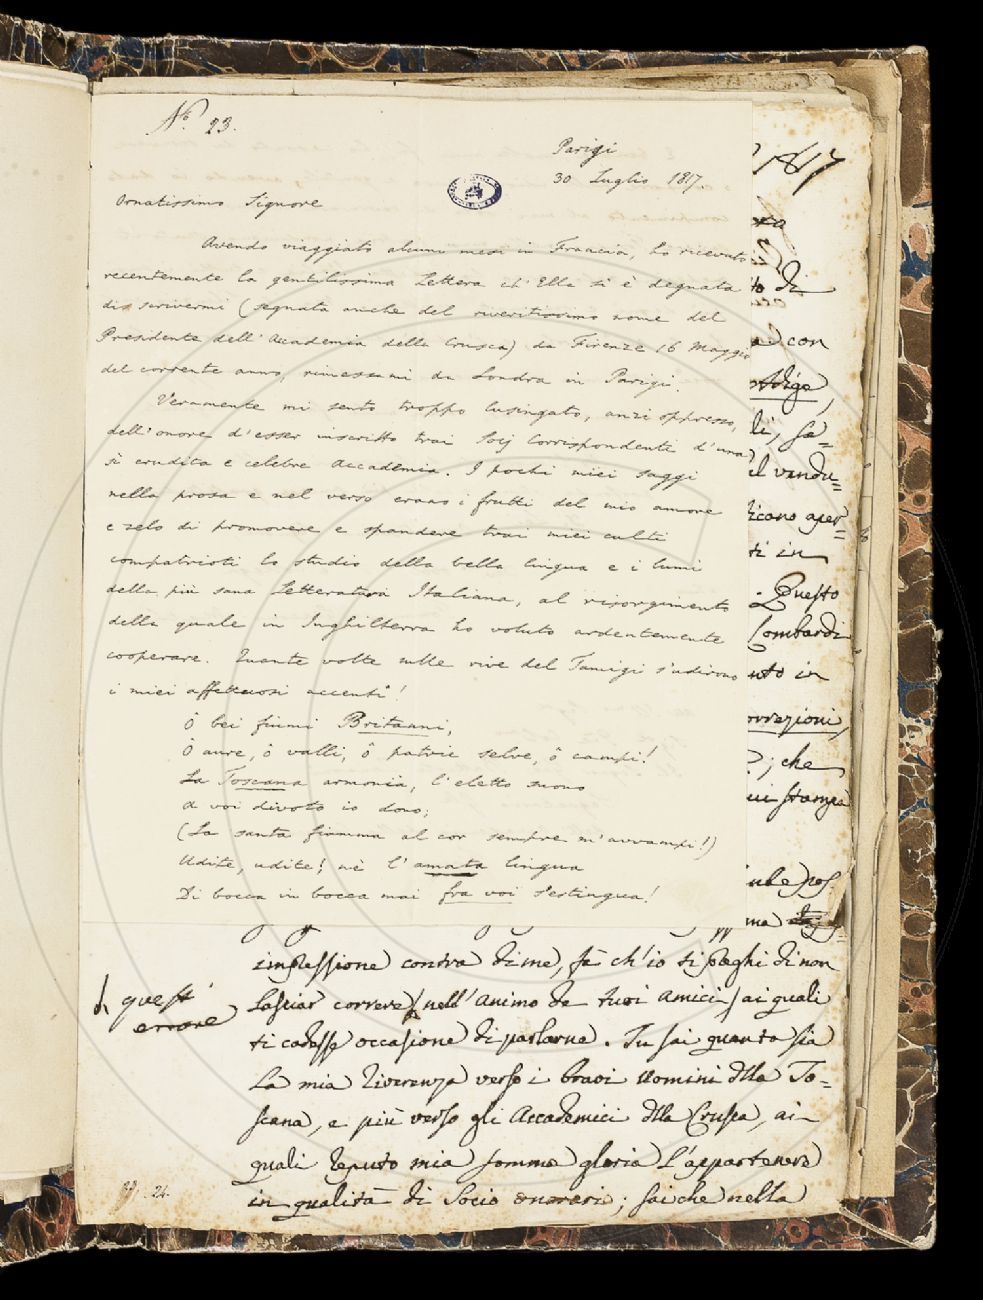 N.º 23.
Parigi
30 Luglio 1817.
Ornatissimo Signore
Avendo viaggiato alcuni mesi in Francia, ho ricevuto
recentemente la gentilissima Lettera ch'Ella si è degnata
di scrivermi (segnata anche del riveritissimo nome del
Presidente dell'Accademia della Crusca) da Firenze 16 Maggio
del corrente anno, rimessami da Londra in Parigi.
Veramente mi sento troppo lusingato, anzi oppresso,
dell'onore d'esser inscritto trai Socj Corrispondenti d'una
sì erudita e celebre Accademia. I pochi miei saggi
nella prosa e nel verso erano i frutti del mio amore
e zelo di promovere e spandere trai miei culti
compatrioti lo studio della bella lingua e i lumi
della più sana Letteratura Italiana, al risorgimento
della quale in Inghilterra ho voluto ardentemente
cooperare. Quante volte sulle rive del Tamigi s'udirono
i miei affettuosi accenti!
Ô bei fiumi Britanni,
Ô aure, ô valli, ô patrie selve, ô campi!
La Toscana armonia, l'eletto suono
A voi divoto io dono;
(La santa fiamma al cor sempre m'avvampi!)
Udite, udite! nè l'amata lingua
Di bocca in bocca mai fra voi s'estingua!
1817
di
con
Adige,
sa=
vendu=
dicano aper=
ti in
Questo
Lombardi
in
correzioni,
; che
stampa
impressione contra di me, fà ch'io ti preghi di non
lasciar correre nell'animo de tuoi amici, ai quali
questi
errore
ti cadesse occasione di parlarne. Tu sai quanta sia
la mia riverenza verso i bravi uomini dlla To=
scana, e più verso gli Accademici dlla Crusca, ai
quali reputo mia somma gloria l'appartenere
in qualità di Socio onorario; sai che nella
24.